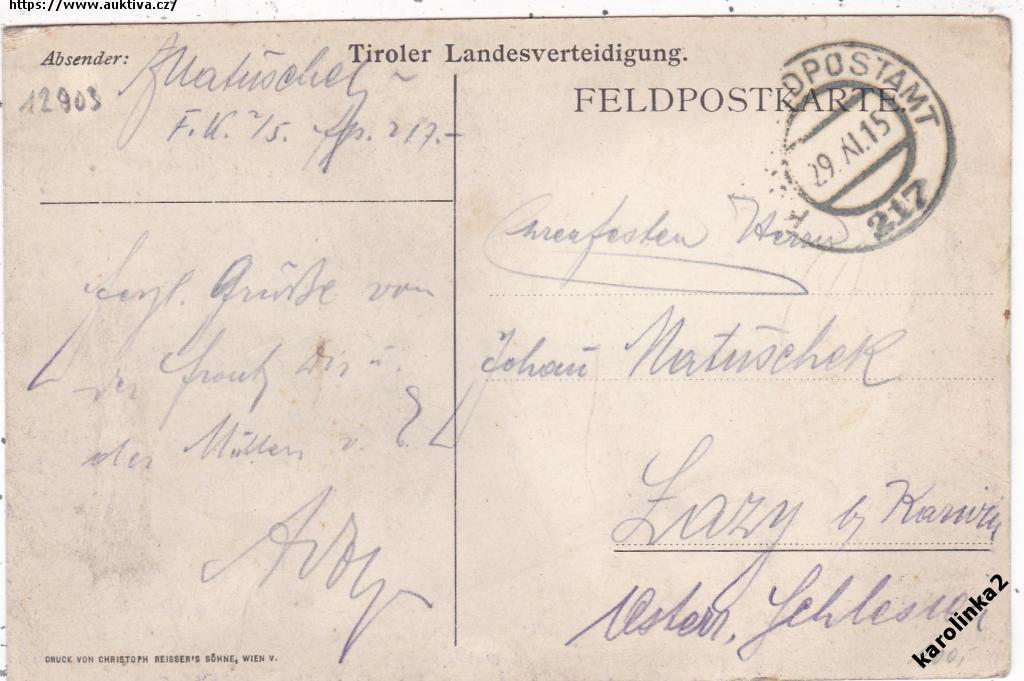 https://www.auktiva.cz/
Absender: Matuschek
12903
F. K. 2/5. Fp. 217.-
Tiroler Landesverteidigung.
FELDPOSTKARTE.
FELDPOSTAMT
29. XI. 15
217
Grüße von
der
der Mutter u.
Ehrenfesten Herrn
Johan Matuschek
Lazy b/ Karwin
Österr. Schlesien
DRUCK VON CHRISTOPH REISSER'S SÖHNE, WIEN V.
karolinka2